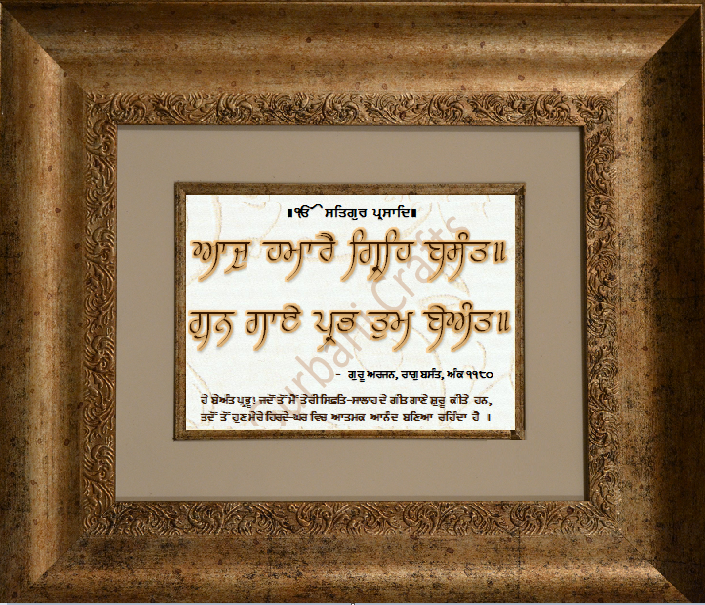 ॥ੴ ਸਤਿਗੁਰ ਪ੍ਰਸਾਦਿ॥
ਆਜੁ ਹਮਾਰੈ ਗ੍ਰਿਹਿ ਬਸੰਤ॥
ਗੁਨ ਗਾਏ ਪ੍ਰਭ ਤੁਮ ਬੇਅੰਤ॥
- ਗੁਰੂ ਅਰਜਨ, ਰਾਗੁ ਬਸੰਤ, ਅੰਕ ੧੧੮੦
ਹੇ ਬੇਅੰਤ ਪ੍ਰਭੂ! ਜਦੋਂ ਤੋਂ ਮੈਂ ਤੇਰੀ ਸਿਫ਼ਤਿ-ਸਾਲਾਹ ਦੇ ਗੀਤ ਗਾਣੇ ਸ਼ੁਰੂ ਕੀਤੇ ਹਨ,
ਤਦੋਂ ਤੋਂ ਹੁਣ ਮੇਰੇ ਹਿਰਦੇ-ਘਰ ਵਿਚ ਆਤਮਕ ਆਨੰਦ ਬਣਿਆ ਰਹਿੰਦਾ ਹੈ ।
Gurbani Crafts